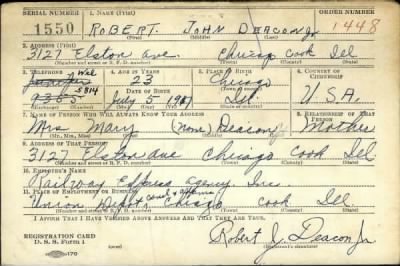 SERIAL NUMBER 1. NAME (Print) ORDER NUMBER
1550 ROBERT JOHN DEACON Jr 1448
(First) (Middle) (Last)
2. ADDRESS (Print)
3127 Elston ave. Chicago Cook Ill
(Town) (County) (State)
3. TELEPHONE 4. AGE IN YEARS 5. PLACE OF BIRTH 6. COUNTRY OF CITIZENSHIP
23 Chicago
5814 DATE OF BIRTH
July 5 Ill. U.S.A.
7. NAME OF PERSON WHO WILL ALWAYS KNOW YOUR ADDRESS 8. RELATIONSHIP OF THAT PERSON
Mrs Mary (none) Deacon Mother
(Mr., Mrs., Miss) (First) (Middle) (Last)
9. ADDRESS OF THAT PERSON
3127 Elston ave Chicago Cook Ill
(Town) (County) (State)
10. EMPLOYER'S NAME
Railway Express Agency Inc.
11. PLACE OF EMPLOYMENT OR BUSINESS
Union Depot Canal & Adams Chicago Cook Ill.
(Town) (County) (State)
I AFFIRM THAT I HAVE VERIFIED ABOVE ANSWERS AND THAT THEY ARE TRUE.
REGISTRATION CARD
D. S. S. Form 1
Robert J. Deacon Jr.
(Registrant's signature)